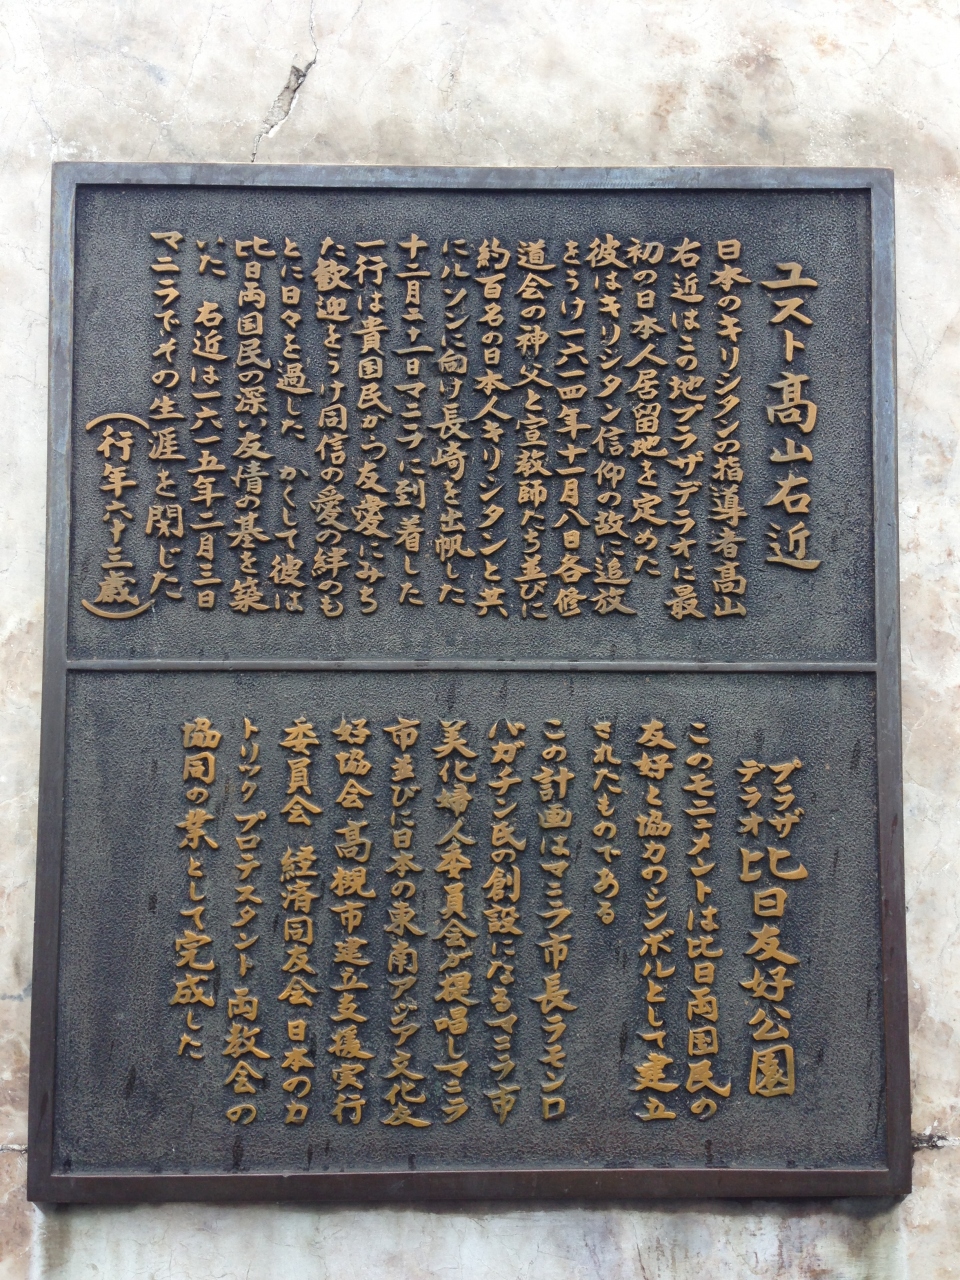 ユスト高山右近
日本のキリシタンの指導者高山
右近はこの地プラザデラオに最
初の日本人居留地を定めた
彼はキリシタン信仰の故に追放
をうけ一六一四年十一月八日各修
道会の神父と宣教師たち並びに
約百名の日本人キリシタンと共
にルソンに向け長崎を出帆した
十二月二十一日マニラに到着した
一行は貴国民から友愛にみち
た歓迎をうけ同信の愛の絆のも
とに日々を過した かくして彼は
比日両国民の深い友情の基を築
いた 右近は一六一五年二月三日
マニラでその生涯を閉じた
(行年六十三歳)
プラザ
デラオ 比日友好公園
このモニュメントは比日両国民の
友好と協力のシンボルとして建立
されたものである
この計画はマニラ市長ラモンD
バガチン氏の創設になるマニラ市
美化婦人委員会が提唱しマニラ
市並びに日本の東南アジア文化友
好協会 高槻市建立支援実行
委員会 経済同友会 日本のカ
トリック プロテスタント 両教会の
協同の業として完成した